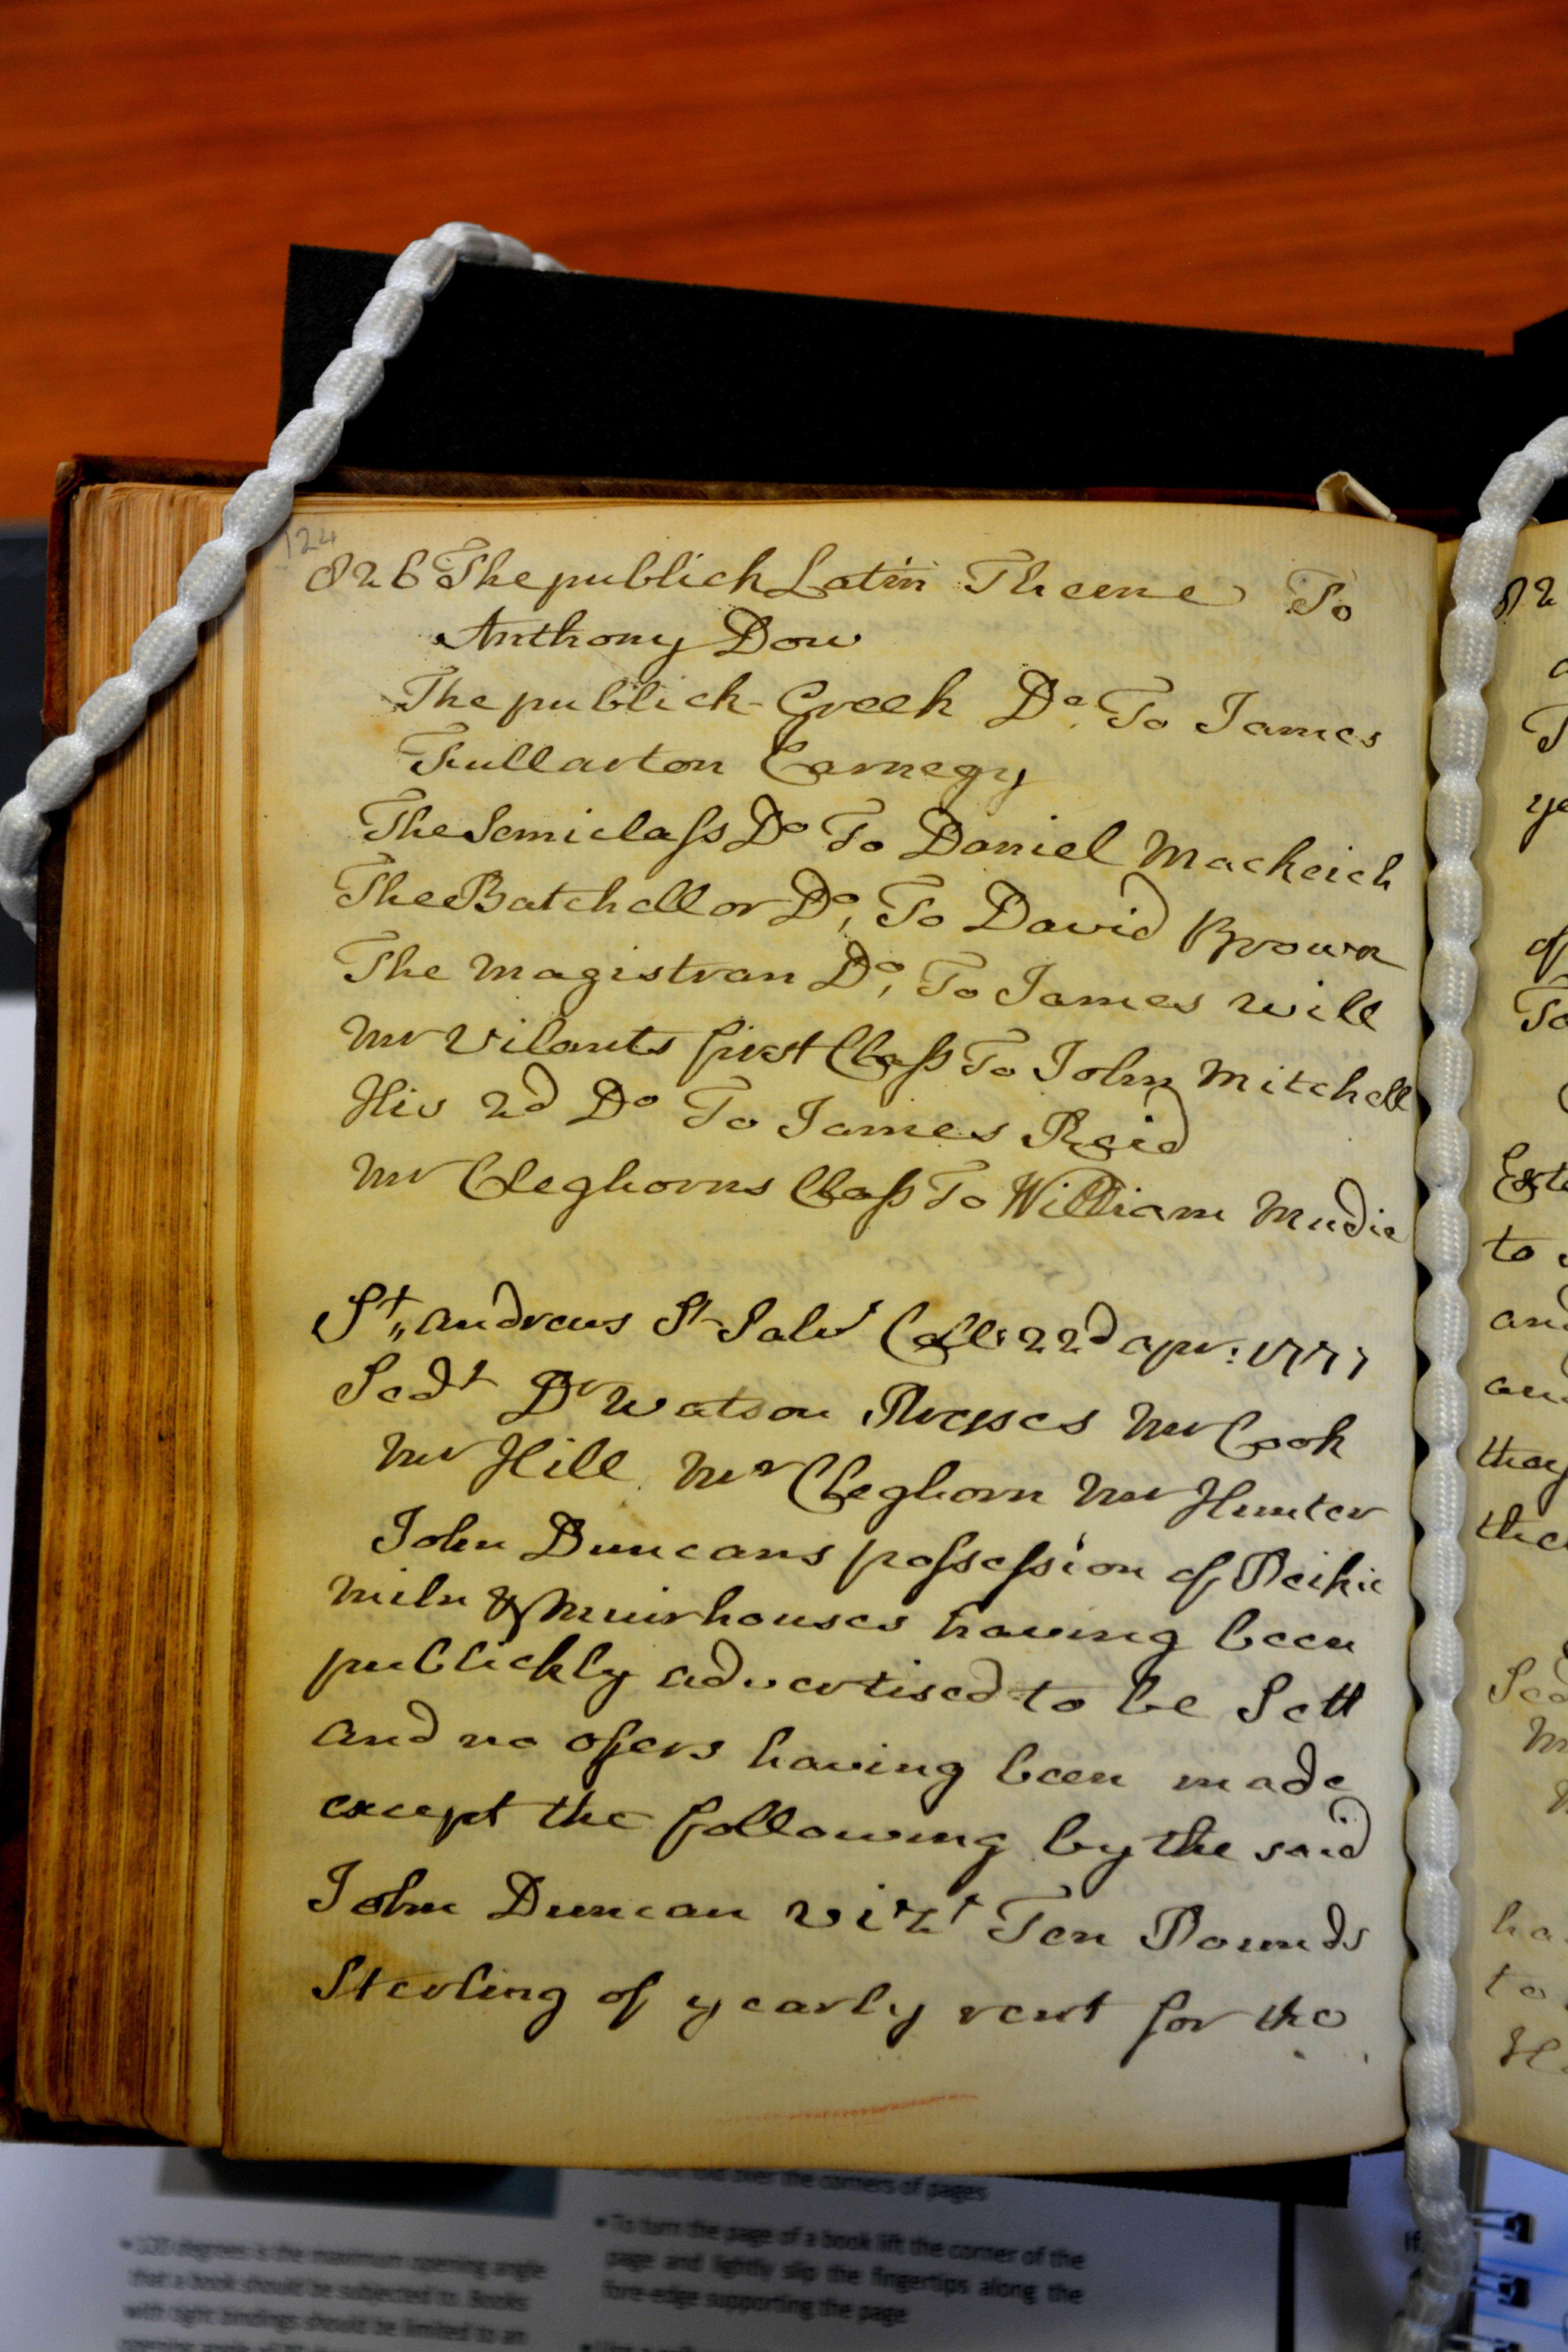 124
826 The publick Latin Theme To
Anthony Dow
The publick Greek Do. To James
Fullarton Carnegy
The Semiclass Do To Daniel Mackeich
The Batchellor Do, To David Brown
The Magistran Do, To James Will
Mr Vilants first Class To John Mitchell
His 2d Do To James Reid
Mr Cleghorns Class To William Mudie
St,, Andrews St Salvr Coll: 22d apr: 1777
Sedt Dr Watson Preses Mr Cook
Mr Hill Mr Cleghorn Mr Hunter
John Duncans possession of Peikie
miln & Muirhouses having been
publickly advertised to be Sett
and no offers having been made
except the following by the said
John Duncan vizt Ten Pounds
Sterling of yearly rent for the
82
ye
of
To
to
and
they
the
ha
to
over the corners of pages
• 120 degrees is the maximum opening angle
that a book should be subjected to. Books
with tight bindings should be limited to an
• To turn the page of a book lift the corner of the
page and lightly slip the fingertips along the
fore-edge supporting the page